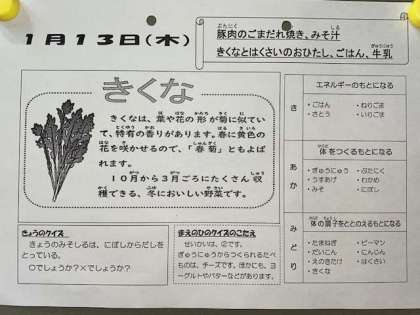 1月13日(木)
豚肉のごまだれ焼き、みそ汁
きくなとはくさいのおひたし、ごはん、牛乳
きくな
きくなは、葉や花の形が菊に似てい
て、特有の香りがあります。春に黄色の
花を咲かせるので、「春菊」ともよば
れます。
10月から3月ごろにたくさん収
穫できる、冬においしい野菜です。
きょうのクイズ
きょうのみそしるは、にぼしからだしを
とっている。
○でしょうか?×でしょうか?
まえのひのクイズのこたえ
せいかいは、②です。
ぎゅうにゅうからつくられるたべ
ものは、チーズです。ほかにも、ヨ
ーグルトやバターなどがあります。
き
エネルギーのもとになる
・ごはん ・ねりごま
・さとう ・いりごま
あか
体をつくるもとになる
・ぎゅうにゅう ・ぶたにく
・うすあげ ・わかめ
・みそ ・にぼし
みどり
体の調子をととのえるもとになる
・たまねぎ ・ピーマン
・だいこん ・にんじん
・えのきたけ ・はくさい
・きくな